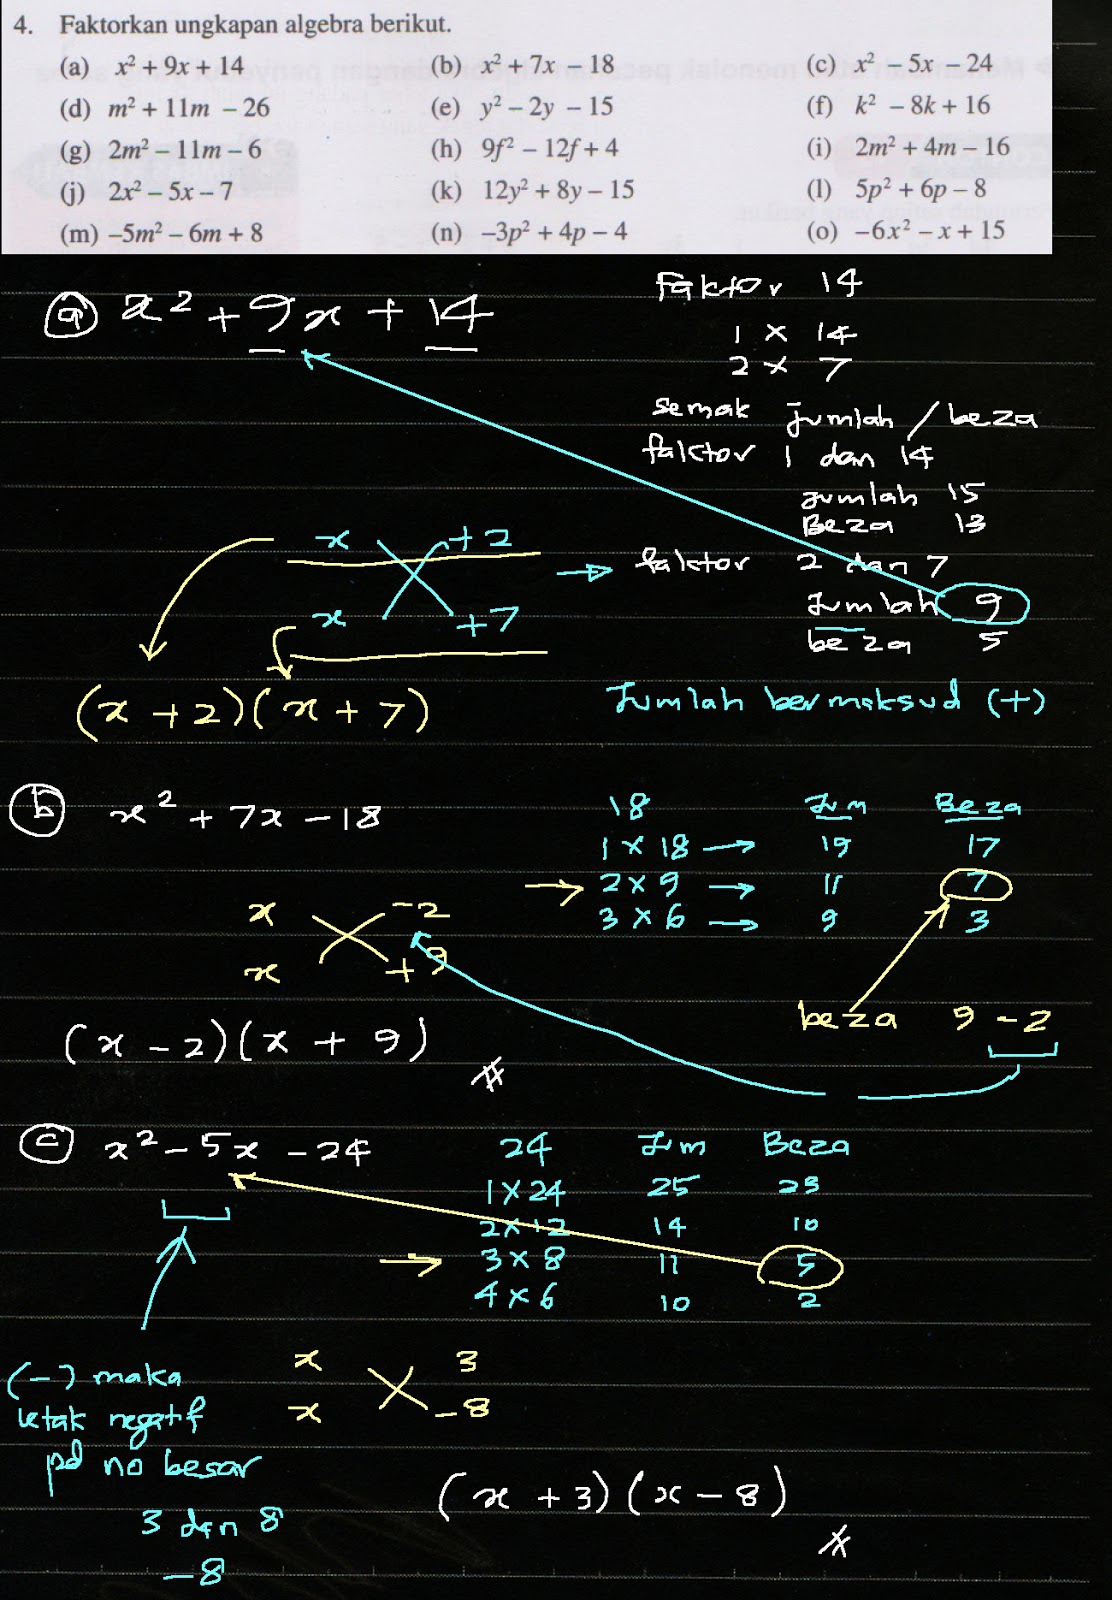 4. Faktorkan ungkapan algebra berikut.
(a) x² + 9x + 14 (b) x² + 7x – 18 (c) x² – 5x – 24
(d) m² + 11m – 26 (e) y² – 2y – 15 (f) k² – 8k + 16
(g) 2m² – 11m – 6 (h) 9f² – 12f + 4 (i) 2m² + 4m – 16
(j) 2x² – 5x – 7 (k) 12y² + 8y – 15 (l) 5p² + 6p – 8
(m) –5m² – 6m + 8 (n) –3p² + 4p – 4 (o) –6x² – x + 15
(a) x² + 9x + 14
Faktor 14
1 x 14
2 x 7
semak jumlah / beza
faktor 1 dan 14
jumlah 15
Beza 13
x +2
faktor 2 dan 7
x +7
Jumlah 9
beza 5
(x + 2)(x + 7)
Jumlah bermaksud (+)
(b) x² + 7x – 18
18 Jum Beza
1 x 18 → 19 17
→ 2 x 9 → 11 7
3 x 6 → 9 3
x –2
x +9
beza 9 – 2
(x – 2)(x + 9)
(c) x² – 5x – 24
24 Jum Beza
1 x 24 25 23
2 x 12 14 10
→ 3 x 8 11 5
4 x 6 10 2
x 3
x –8
(–) maka
letak negatif
pd no besar
3 dan 8
–8
(x + 3)(x – 8)